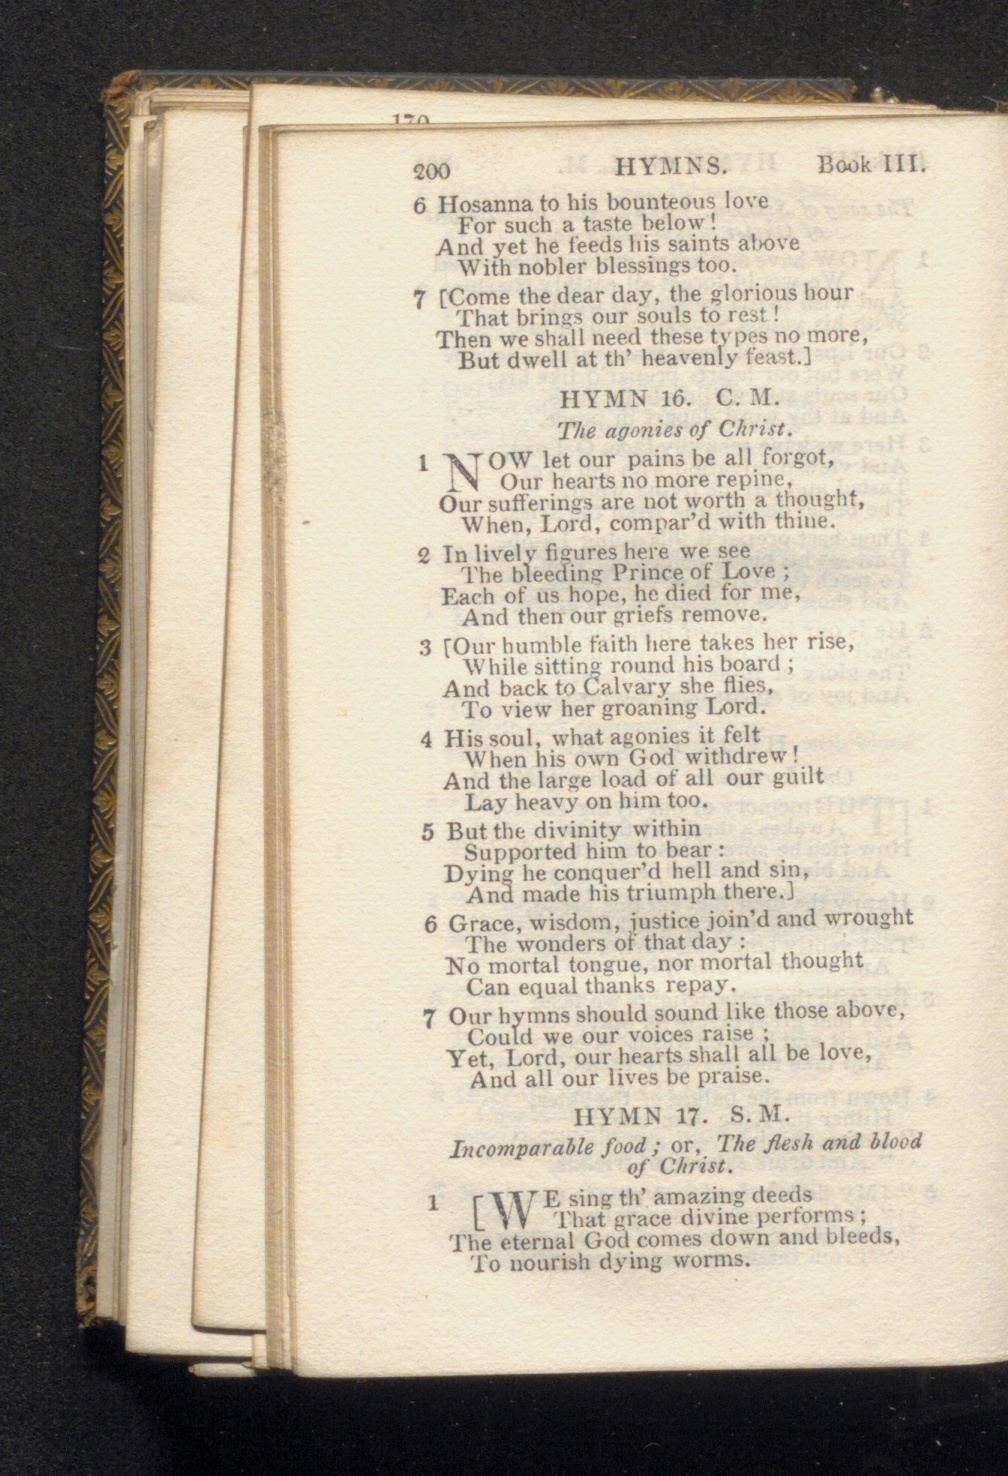 200 HYMNS. Book III.
6 Hosanna to his bounteous love
For such a taste below!
And yet he feeds his saints above
With nobler blessings too.
7 [Come the dear day, the glorious hour
That brings our souls to rest!
Then we shall need these types no more,
But dwell at th' heavenly feast.]
HYMN 16. C. M.
The agonies of Christ.
1 NOW let our pains be all forgot,
Our hearts no more repine,
Our sufferings are not worth a thought,
When, Lord, compar'd with thine.
2 In lively figures here we see
The bleeding Prince of Love;
Each of us hope, he died for me,
And then our griefs remove.
3 [Our humble faith here takes her rise,
While sitting round his board;
And back to Calvary she flies,
To view her groaning Lord.
4 His soul, what agonies it felt
When his own God withdrew!
And the large load of all our guilt
Lay heavy on him too.
5 But the divinity within
Supported him to bear:
Dying he conquer'd hell and sin,
And made his triumph there.]
6 Grace, wisdom, justice join'd and wrought
The wonders of that day:
No mortal tongue, nor mortal thought
Can equal thanks repay.
7 Our hymns should sound like those above,
Could we our voices raise;
Yet, Lord, our hearts shall all be love,
And all our lives be praise.
HYMN 17. S. M.
Incomparable food; or, The flesh and blood
of Christ.
1 [WE sing th' amazing deeds
That grace divine performs;
The eternal God comes down and bleeds,
To nourish dying worms.